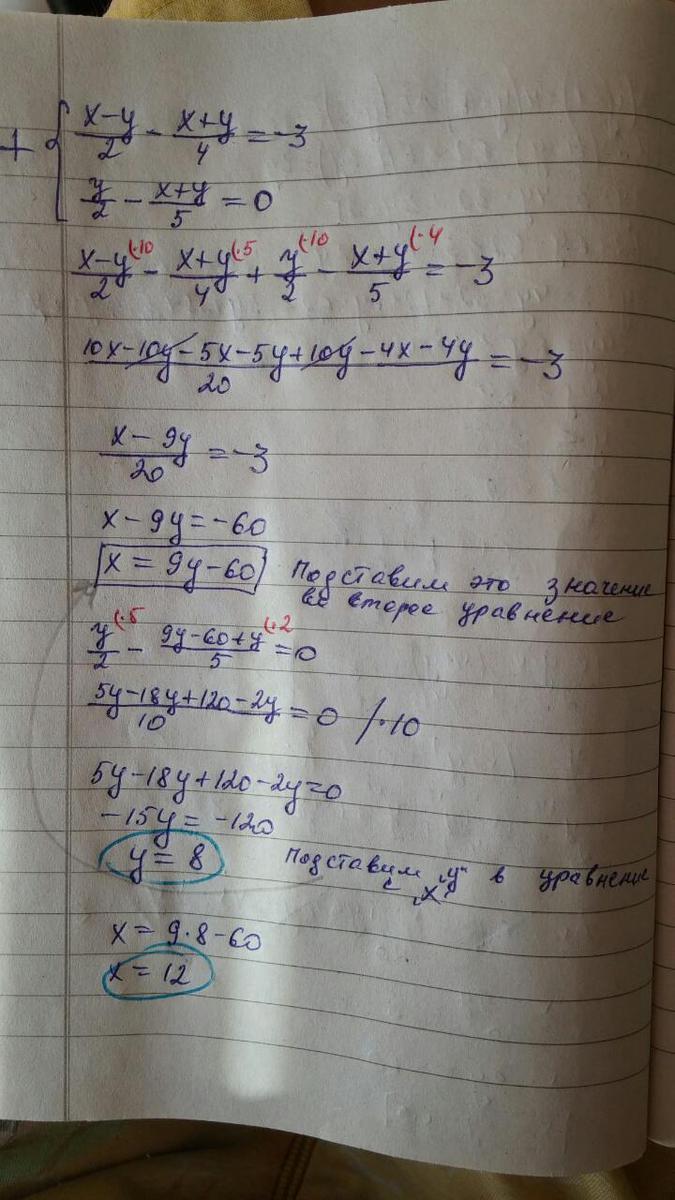 + { (x-y)/2 - (x+y)/4 = -3
y/2 - (x+y)/5 = 0
(x-y)/2 (·10 - (x+y)/4 (·5 + y/2 (·10 - (x+y)/5 (·4 = -3
(10x-10y-5x-5y+10y-4x-4y)/20 = -3
(x-9y)/20 = -3
x-9y=-60
x = 9y-60 Подставим это значение
во второе уравнение
y/2 (·5 - (9y-60+y)/5 (·2 =0
(5y-18y+120-2y)/10 =0 /·10
5y-18y+120-2y=0
-15y= -120
y= 8 Подставим „y" в уравнение
с „x"
x= 9·8-60
x= 12